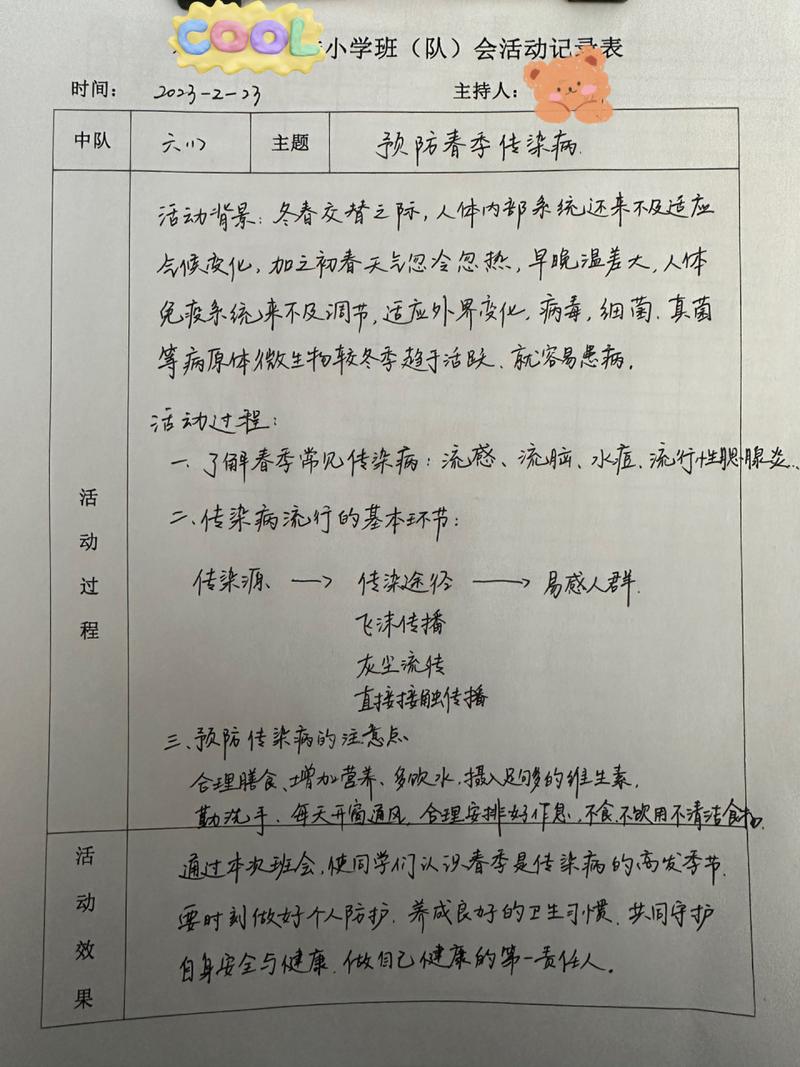 COOL
小学班（队）会活动记录表
时间： 2023-2-23 主持人：
中队 六(1) 主题 预防春季传染病.
活动背景：冬春交替之际，人体内部系统还来不及适应
气候变化，加之初春天气忽冷忽热，早晚温差大，人体
免疫系统来不及调节，适应外界变化，病毒，细菌、真菌
等病原体微生物较冬季趋于活跃、就容易患病。
活动过程：
一、了解春季常见传染病：流感、流脑、水痘、流行性腮腺炎...
二、传染病流行的基本环节：
传染源 → 传染途径 → 易感人群.
飞沫传播
灰尘流传
直接接触传播
三、预防传染病的注意点
合理膳食、增加营养、多饮水，摄入足够多的维生素，
勤洗手、每天开窗通风，合理安排好作息，不食、不饮用不清洁食物.
活动过程
通过本次班会，使同学们认识春季是传染病的高发季节.
要时刻做好个人防护、养成良好的卫生习惯、共同守护
自身安全与健康、做自己健康的第一责任人。
活动效果